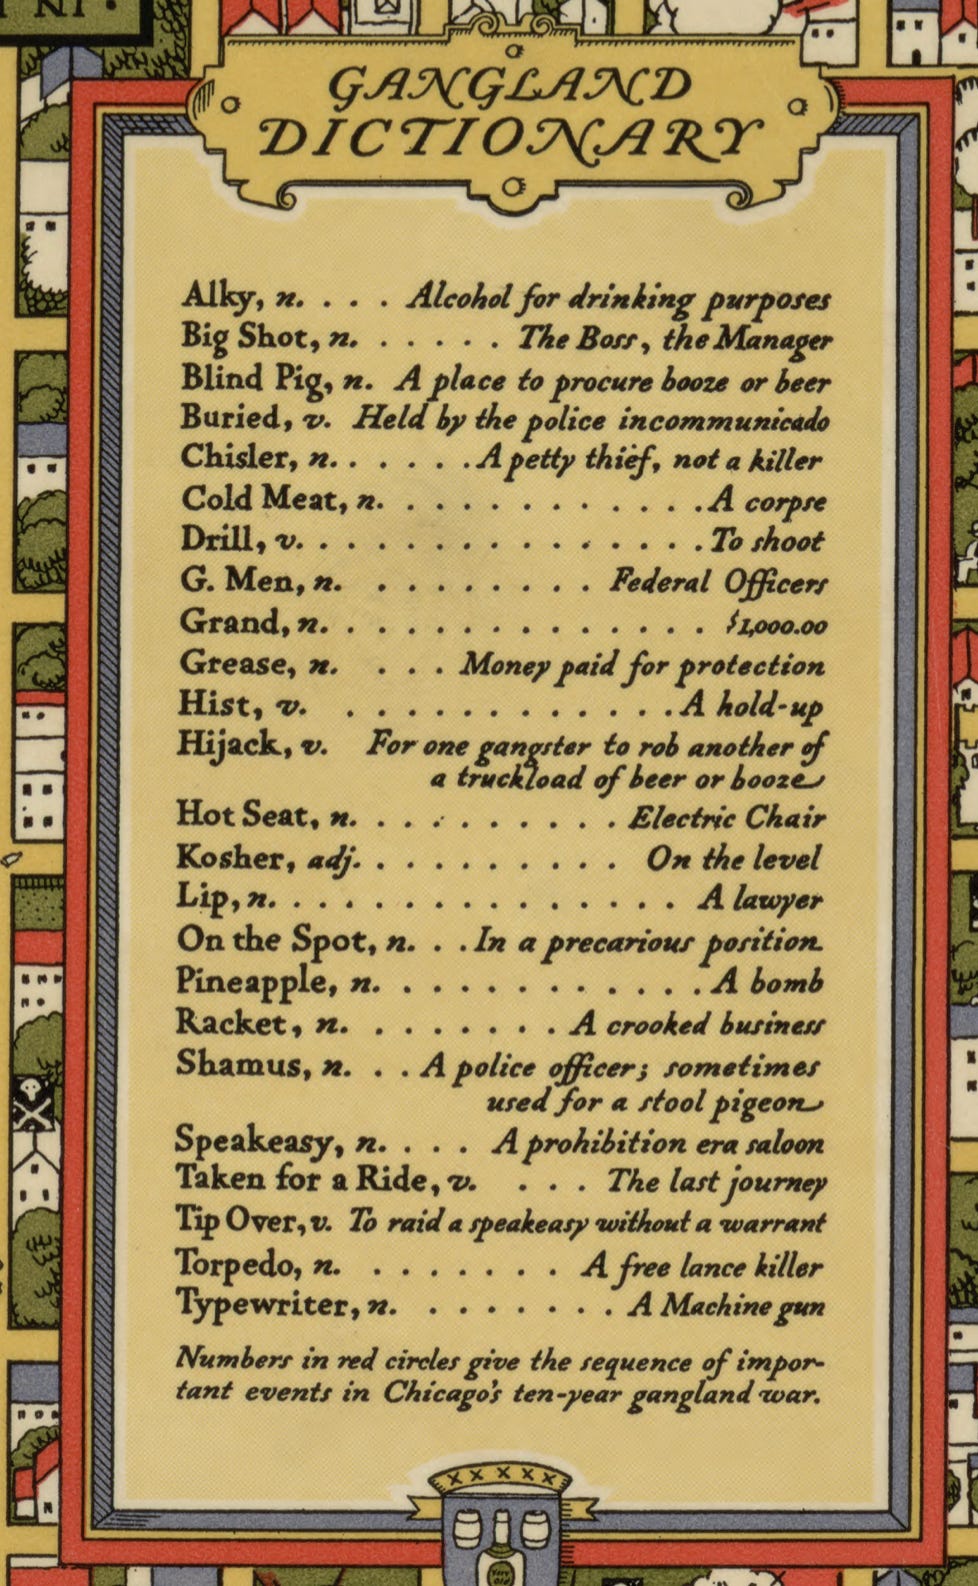 GANGLAND
DICTIONARY
Alky, n. . . . Alcohol for drinking purposes
Big Shot, n. . . . . . The Boss, the Manager
Blind Pig, n. A place to procure booze or beer
Buried, v. Held by the police incommunicado
Chisler, n. . . . . . . A petty thief, not a killer
Cold Meat, n. . . . . . . . . . . . . A corpse
Drill, v. . . . . . . . . . . . . . . . . To shoot
G. Men, n. . . . . . . . . Federal Officers
Grand, n. . . . . . . . . . . . . . . $1,000.00
Grease, n. . . . Money paid for protection
Hist, v. . . . . . . . . . . . . A hold-up
Hijack, v. For one gangster to rob another of
a truckload of beer or booze
Hot Seat, n. . . . . . . . . . . Electric Chair
Kosher, adj. . . . . . . . . . On the level
Lip, n. . . . . . . . . . . . . . . . A lawyer
On the Spot, n. . . In a precarious position.
Pineapple, n. . . . . . . . . . . . A bomb
Racket, n. . . . . . . . A crooked business
Shamus, n. . . A police officer; sometimes
used for a stool pigeon
Speakeasy, n. . . . A prohibition era saloon
Taken for a Ride, v. . . . The last journey
Tip Over, v. To raid a speakeasy without a warrant
Torpedo, n. . . . . . . . A free lance killer
Typewriter, n. . . . . . . . A Machine gun
Numbers in red circles give the sequence of impor-
tant events in Chicago's ten-year gangland war.
XXXXX
Very
Old